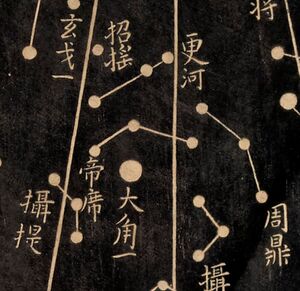 將
更河
招搖
玄戈一
周鼎
大角一
帝席
攝提
攝